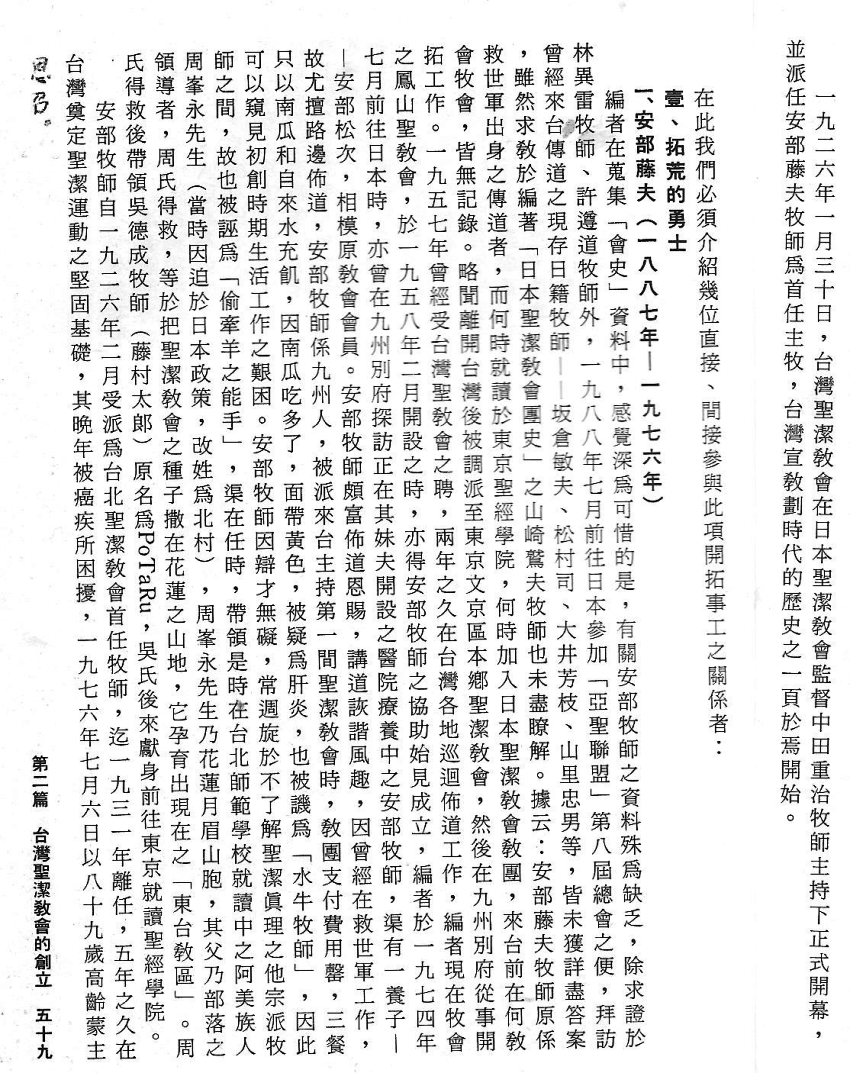 一九二六年一月三十日，台灣聖潔教會在日本聖潔教會監督中田重治牧師主持下正式開幕，
並派任安部藤夫牧師爲首任主牧，台灣宣教劃時代的歷史之一頁於焉開始。
在此我們必須介紹幾位直接、間接參與此項開拓事工之關係者：
壹、拓荒的勇士
一、安部藤夫（一八八七年—一九七六年）
編者在蒐集「會史」資料中，感覺深爲可惜的是，有關安部牧師之資料殊爲缺乏，除求證於
林異雷牧師、許遵道牧師外，一九八八年七月前往日本參加「亞聖聯盟」第八屆總會之便，拜訪
曾經來台傳道之現存日籍牧師——坂倉敏夫、松村司、大井芳枝、山里忠男等，皆未獲詳盡答案
，雖然求教於編著「日本聖潔教會團史」之山崎鷲夫牧師也未盡瞭解。據云：安部藤夫牧師原係
救世軍出身之傳道者，而何時就讀於東京聖經學院，何時加入日本聖潔教會教團，來台前在何教
會牧會，皆無記錄。略聞離開台灣後被調派至東京文京區本鄉聖潔教會，然後在九州別府從事開
拓工作。一九五七年曾經受台灣聖教會之聘，兩年之久在台灣各地巡迴佈道工作，編者現在牧會
之鳳山聖教會，於一九五八年二月開設之時，亦得安部牧師之協助始見成立，編者於一九七四年
七月前往日本時，亦曾在九州別府探訪正在其妹夫開設之醫院療養中之安部牧師，渠有一養子—
—安部松次，相模原教會會員。安部牧師頗富佈道恩賜，講道詼諧風趣，因曾經在救世軍工作，
故尤擅路邊佈道，安部牧師係九州人，被派來台主持第一間聖潔教會時，教團支付費用罄，三餐
只以南瓜和自來水充飢，因南瓜吃多了，面帶黃色，被疑爲肝炎，也被譏爲「水牛牧師」，因此
可以窺見初創時期生活工作之艱困。安部牧師因辯才無礙，常週旋於不了解聖潔眞理之他宗派牧
師之間，故也被誣爲「偷牽羊之能手」，渠在任時，帶領是時在台北師範學校就讀中之阿美族人
周峯永先生（當時因迫於日本政策，改姓爲北村），周峯永先生乃花蓮月眉山胞，其父乃部落之
領導者，周氏得救，等於把聖潔教會之種子撒在花蓮之山地，它孕育出現在之「東台教區」。周
氏得救後帶領吳德成牧師（藤村太郎）原名爲PoTaRu，吳氏後來獻身前往東京就讀聖經學院。
安部牧師自一九二六年二月受派爲台北聖潔教會首任牧師，迄一九三一年離任，五年之久在
台灣奠定聖潔運動之堅固基礎，其晚年被癌疾所困擾，一九七六年七月六日以八十九歲高齡蒙主
恩召。
第二篇　台灣聖潔教會的創立　五十九